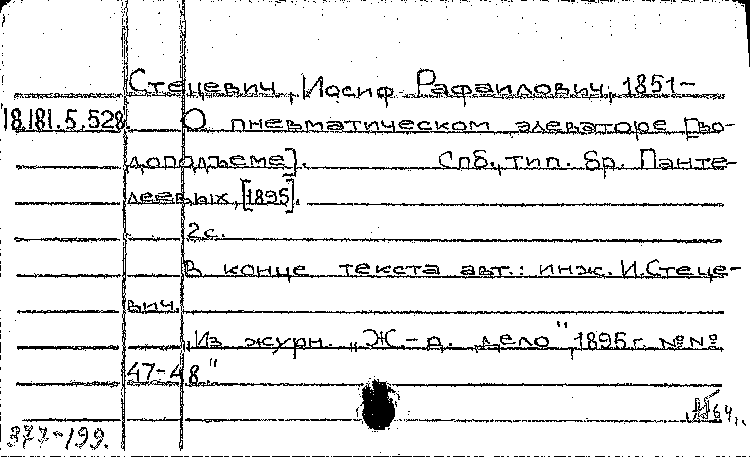 Стецевич, Иосиф Рафаилович, 1851-
18.181.5.528. О пневматическом элеваторе [во-
доподъеме]. Спб., тип. бр. Панте-
леевых, [1895].
2с.
В конце текста авт.: инж. И.Стеце-
вич.
„Из журн. „Ж-д. дело", 1895 г. №№
47-48"
377-199.